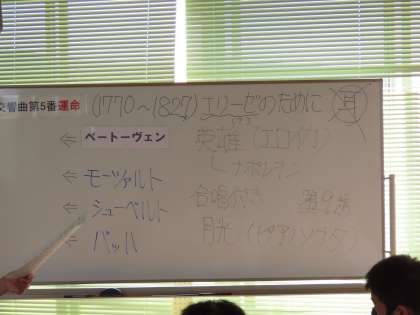 交響曲第5番運命 (1770~1827) エリーゼのために 耳
⇐ ベートーヴェン 英雄 (エロイカ)
ナポレオン
⇐ モーツァルト 合唱付き 第9
⇐ シューベルト 月光 (ピアノソナタ)
⇐ バッハ